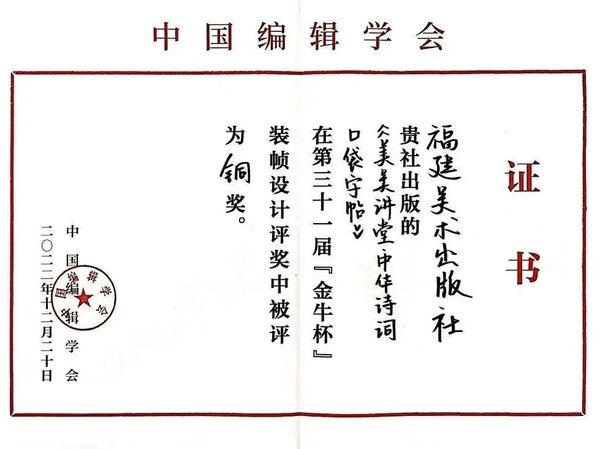 中国编辑学会
证书
福建美术出版社
贵社出版的
《美美讲堂中华诗词
口袋字帖》
在第三十一届『金牛杯』
装帧设计评奖中被评
为铜奖。
中国编辑学会
二〇二二年十二月二十日
中国编辑学会